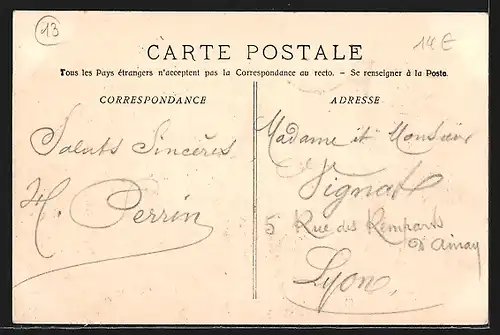 13
14€
CARTE POSTALE
Tous les Pays étrangers n'acceptent pas la Correspondance au recto. – Se renseigner à la Poste.
CORRESPONDANCE
Saluts Sincères
H. Perrin
ADRESSE
Madame et Monsieur
Vignat
5 Rue des Remparts
d'Ainay
Lyon,